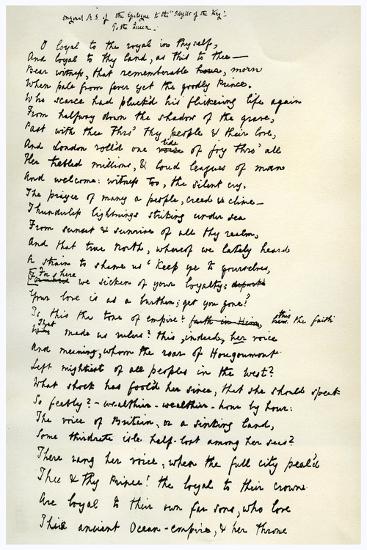 Original M.S. of the Epilogue to the "Idylls of the King".
To the Queen.
O loyal to the royal in thyself,
And loyal to thy land, as this to thee—
Bear witness, that rememberable hour, morn
When pale from fever yet the goodly Prince,
Who scarce had pluck'd his flickering life again
From halfway down the shadow of the grave,
Past with thee thro' thy people & their love,
And London roll'd one tide of joy thro' all
Her trebled millions, & loud leagues of man
And welcome: witness too, the silent cry,
The prayer of many a people, creed & clime—
Thunderless lightnings striking under sea
From sunset & sunrise of all thy realm,
And that true North, whereof we lately heard
A strain to shame us 'Keep ye to yourselves,
For so here we sicken of your loyalty:
Your love is as a burthen; get you gone!'
Is this the tone of empire? faith in Him, here this the faith
That made us rulers? this, indeed, her voice
And meaning, whom the roar of Hougoumont
Left mightiest of all peoples in the west?
What shock has fool'd her since, that she should speak
So feebly?—wealthier—wealthier—hour by hour:
The voice of Britain, or a sinking land,
Some thirdrate isle half-lost among her seas?
There rang her voice, when the full city peal'd
Thee & thy Prince! the loyal to their crown
Are loyal to their own far sons, who love
This ancient Ocean-empire, & her throne